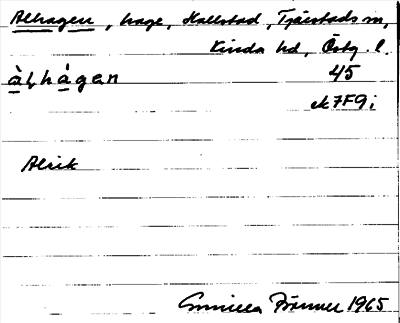 Alhagen, hage, Hallstad, Tjärstads sn,
Kinda hd, Östg. l.
àl,hágan 45
ek 7F9i
Alrik
Gunilla Brönner 1965